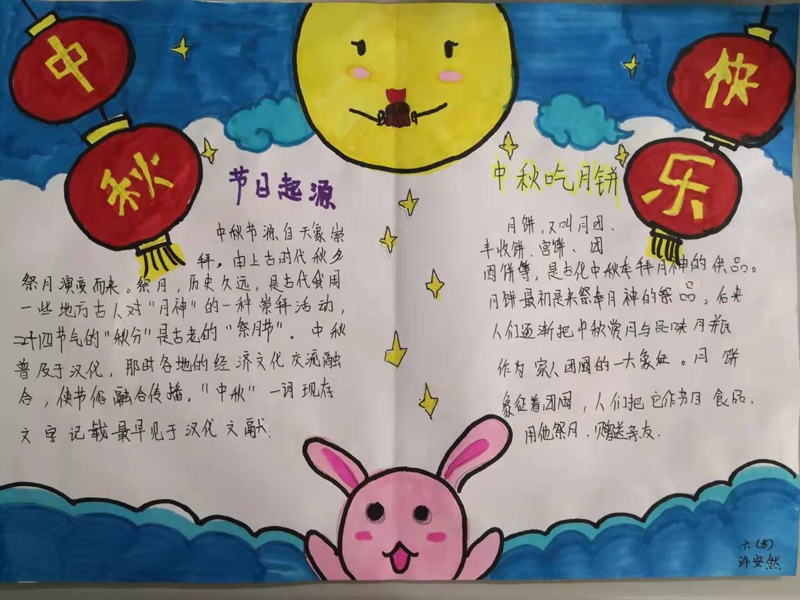 中
秋
快
乐
节日起源
中秋节源自天象崇
拜，由上古时代秋夕
祭月演变而来。祭月，历史久远，是古代我国
一些地方古人对"月神"的一种崇拜活动，
二十四节气的"秋分"是古老的"祭月节"。中秋
普及于汉代，那时各地的经济文化交流融
合，使节俗融合传播。"中秋"一词现存
文字记载最早见于汉代文献.
中秋吃月饼
月饼，又叫月团、
丰收饼、宫饼、团
圆饼等，是古代中秋奉拜月神的供品。
月饼最初是来祭奉月神的祭品，后来
人们逐渐把中秋赏月与品味月饼
作为家人团圆的一大象征。月饼
象征着团圆，人们把它作为节日食品，
用他祭月、赠送亲友.
六(5)
许安然